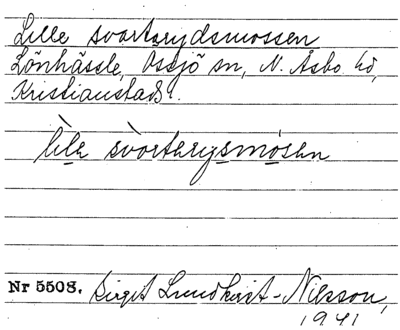 Lille svartarydsmossen
Lönhässle, Össjö sn, N. Åsbo hd,
Kristianstads l.
lìlɐ svàrtarysmòsɐn
Nr 5508. Birgit Lundkvist-Nilsson,
1941